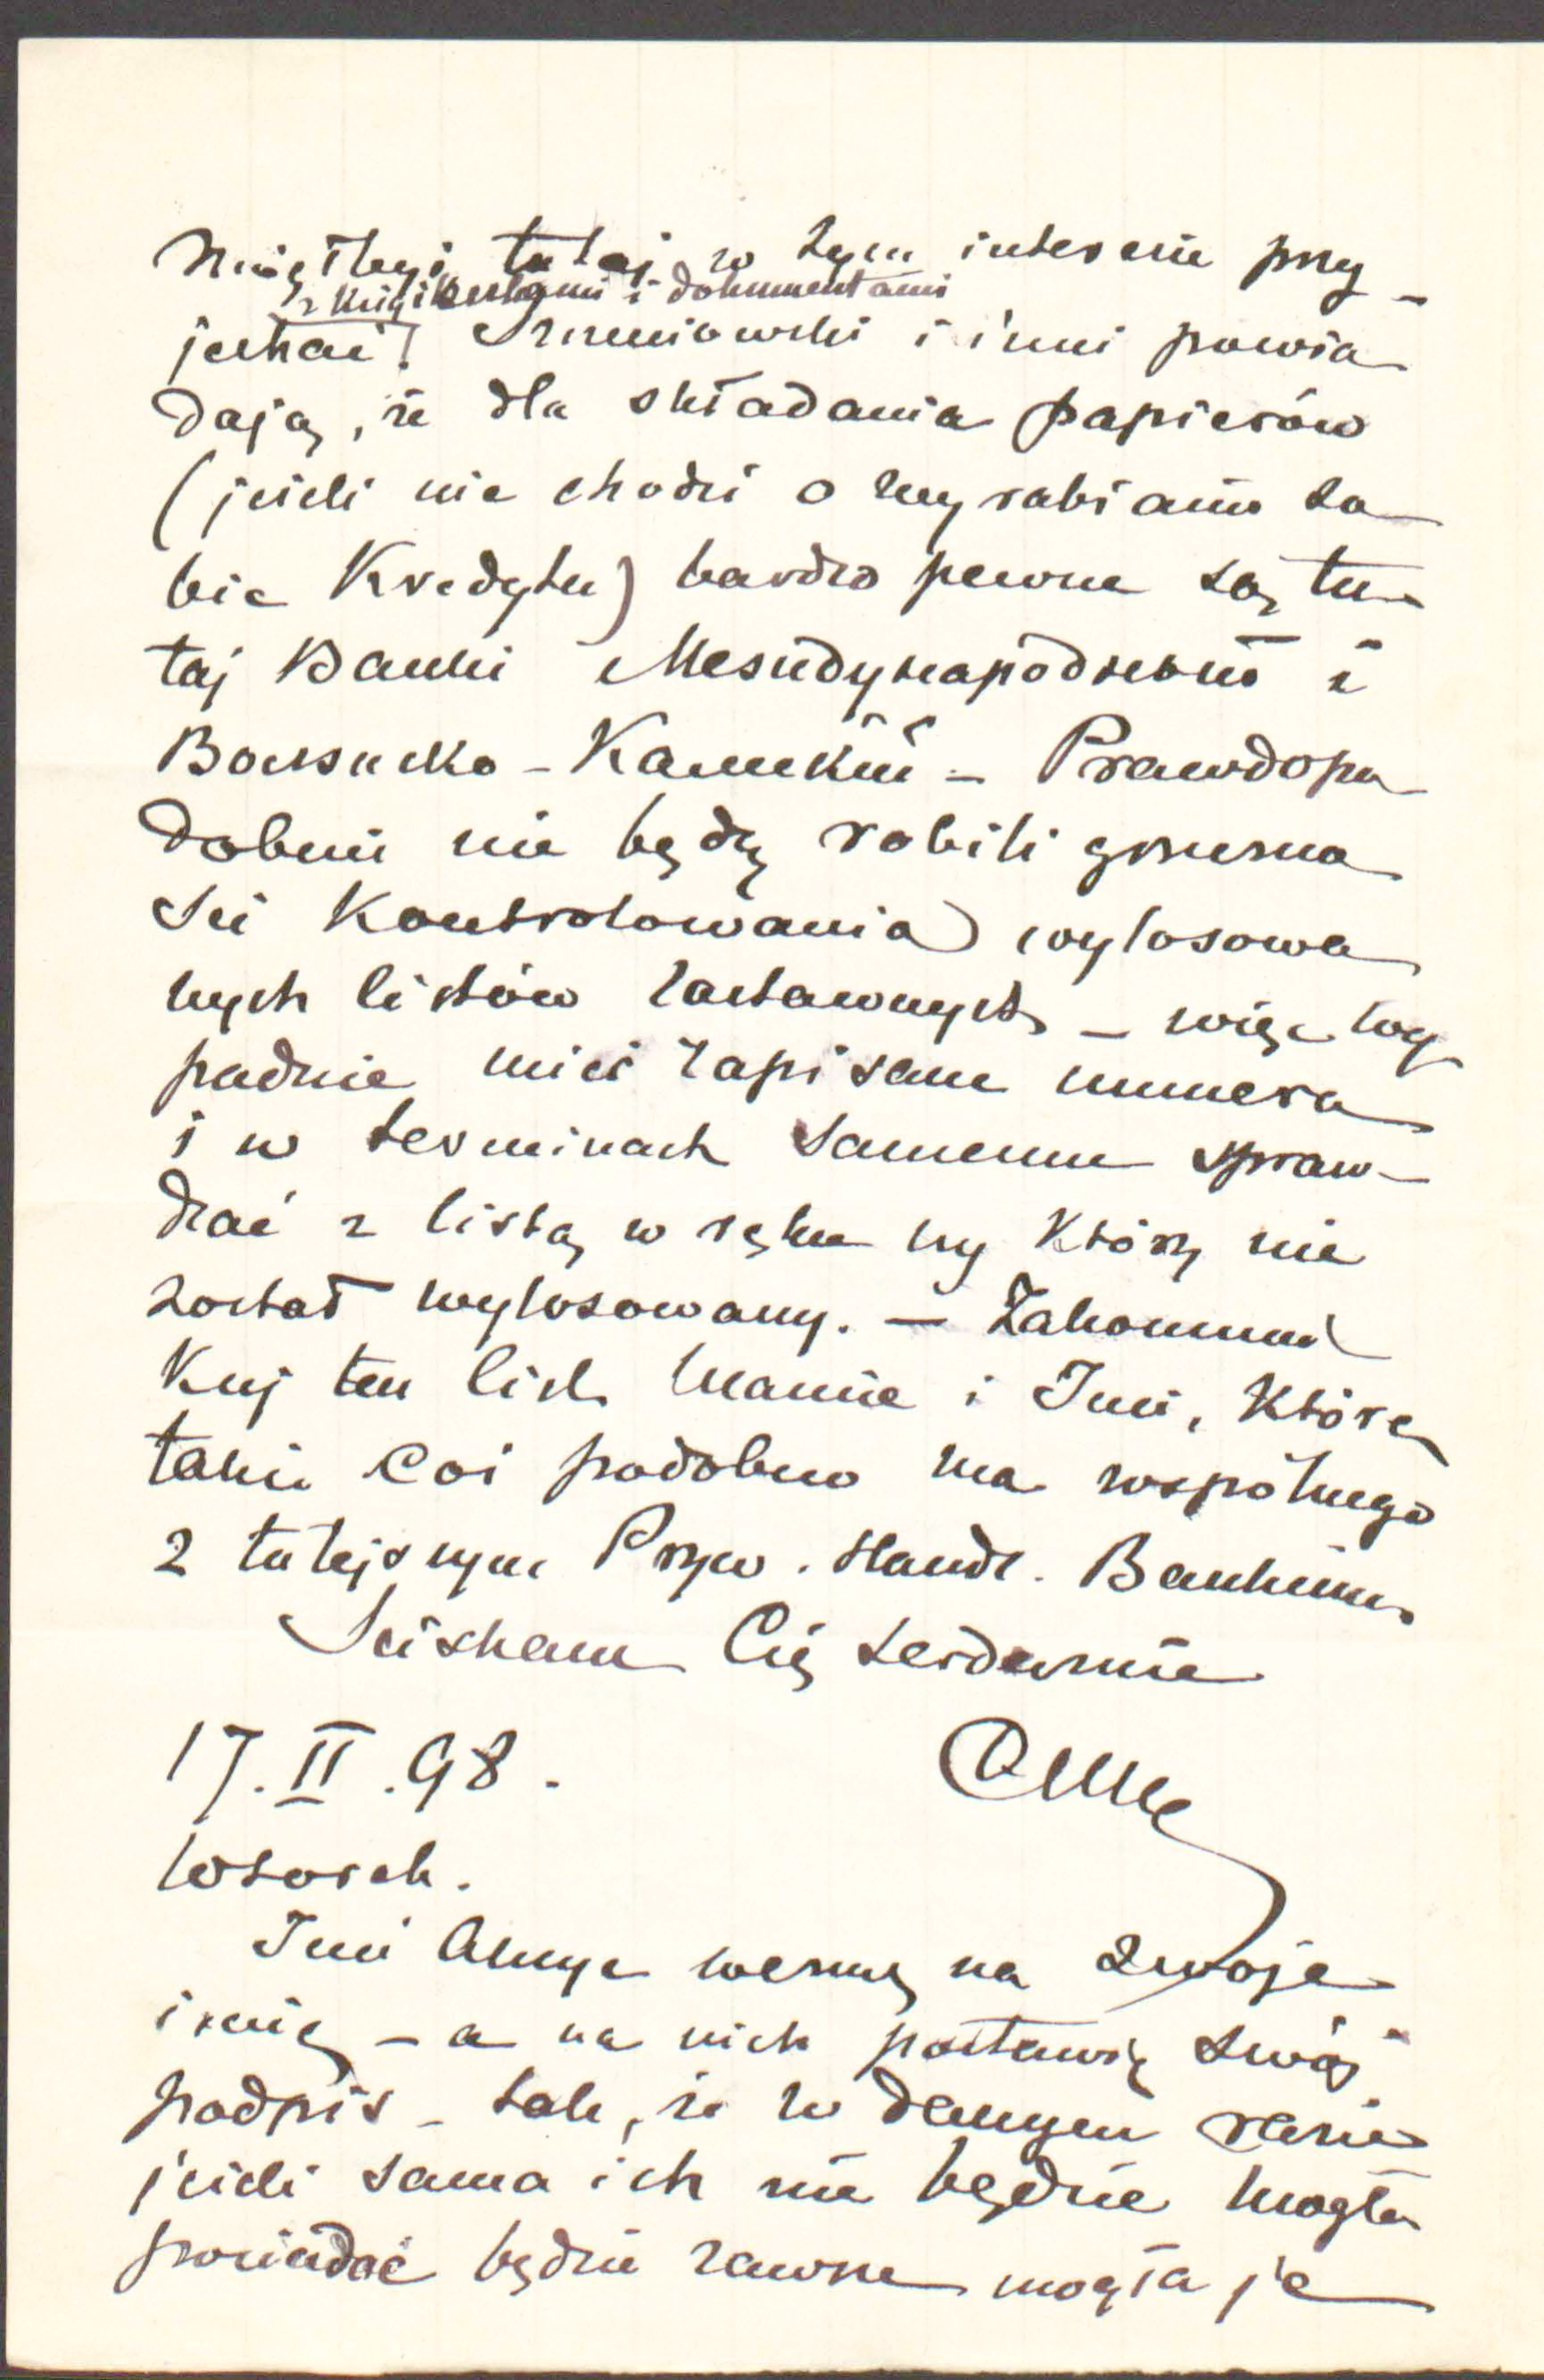 mógłbyś tutaj w tym interesie przy-
z książkami i dokumentami
jechać? i inni powia
dają, że dla składania papierów
(jeżeli nie chodzi o wyrabianie so
bie Kredytu) bardzo pewne są tu-
taj Banki Meżdynapodnew i
Wołżsko-Kamskij – Prawdopo
dobnie nie będą robili grzeczno
ści Kontrolowania wylosowa
nych listów zastawnych – więc wy
padnie mieć zapisane numera
i w terminach samemu spraw-
dzać z listą w ręku czy który nie
został wylosowany. – Zakomuni
Kuj ten list Mamie i Inie, która
także coś podobno ma wspólnego
z tutejszym Pryw. Handl. Bankiem
Ściskam Cię serdecznie
17.II.98.
Wtorek.
Ini Akcye wezmę na swoje
imię – a na nich postawię swój
podpis – tak, że w danym razie
jeżeli sama ich nie będzie mogła
posiadać będzie zawsze mogła je